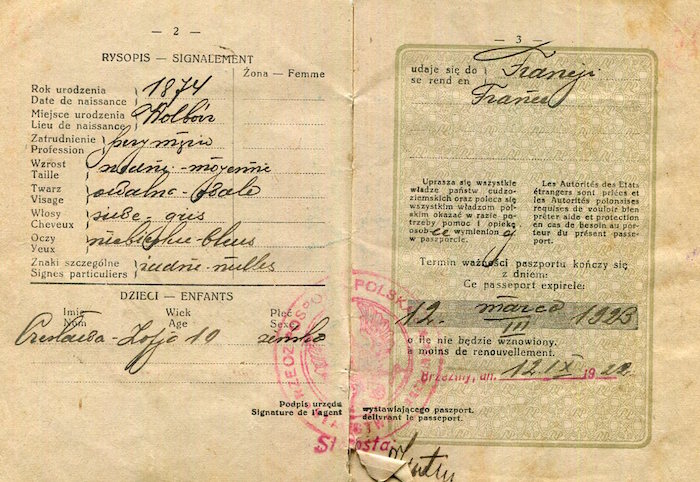 — 2 —
RYSOPIS — SIGNALEMENT
Żona — Femme
Rok urodzenia
Date de naissance
1874
Miejsce urodzenia
Lieu de naissance
Wolbór
Zatrudnienie
Profession
przy mężu
Wzrost
Taille
średni - moyenne
Twarz
Visage
owalna - ovale
Włosy
Cheveux
siwe - gris
Oczy
Yeux
niebieskie - bleus
Znaki szczególne
Signes particuliers
żadne - nulles
DZIECI — ENFANTS
Imię Wiek Płeć
Nom Age Sexe
Czesława - Zofja 19 żeńska
Podpis urzędu
Signature de l'agent
— 3 —
udaje się do Francji
se rend en France
Uprasza się wszystkie
władze państw cudzo-
ziemskich oraz poleca się
wszystkim władzom pol-
skim okazać w razie po-
trzeby pomoc i opiekę
osobie wymienionej
w paszporcie.
Les Autorités des Etats
étrangers sont priées et
les Autorités polonaises
requises de vouloir bien
prêter aide et protection
en cas de besoin au por-
teur du présent passe-
port.
Termin ważności paszportu kończy się
z dniem:
Ce passeport expirele:
12. marca 1923
III
o ile nie będzie wznowiony.
à moins de renouvellement.
Brzeziny, dn. 12 IX 1922
wystawiającego paszport.
délivrant le passeport.
Starosta